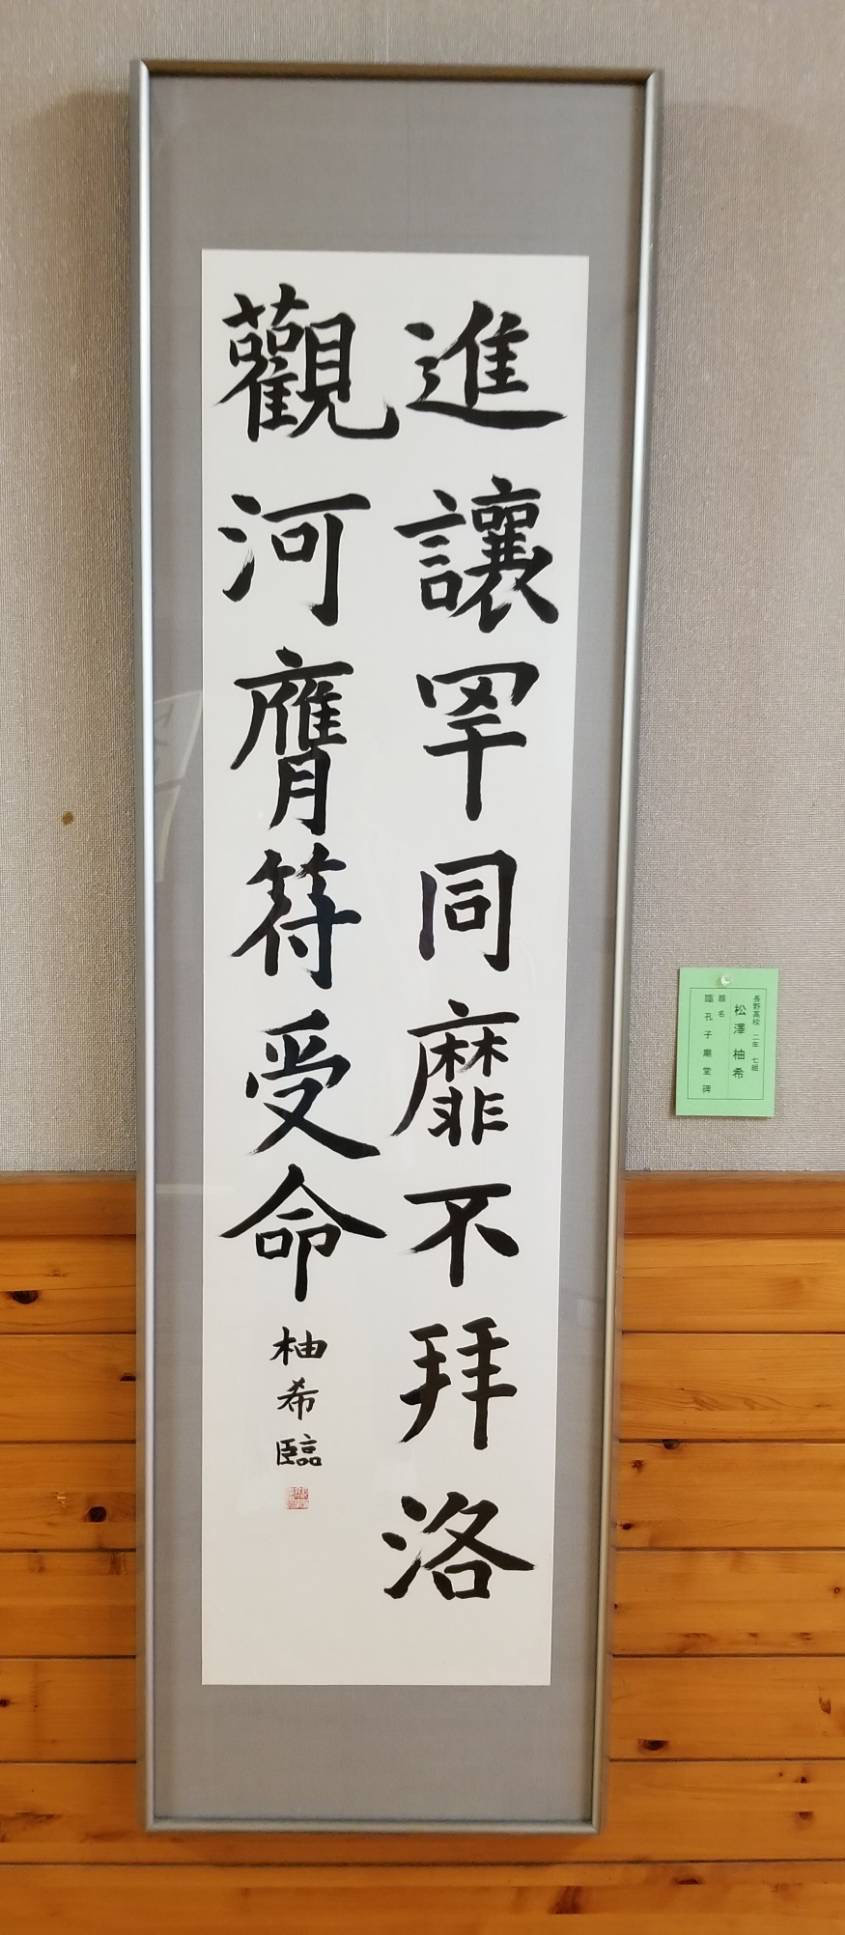 進讓罕同靡不拜洛
觀河膺符受命
柚希臨
長野高校 二年 七組
松澤 柚希
題名
臨孔子廟堂碑